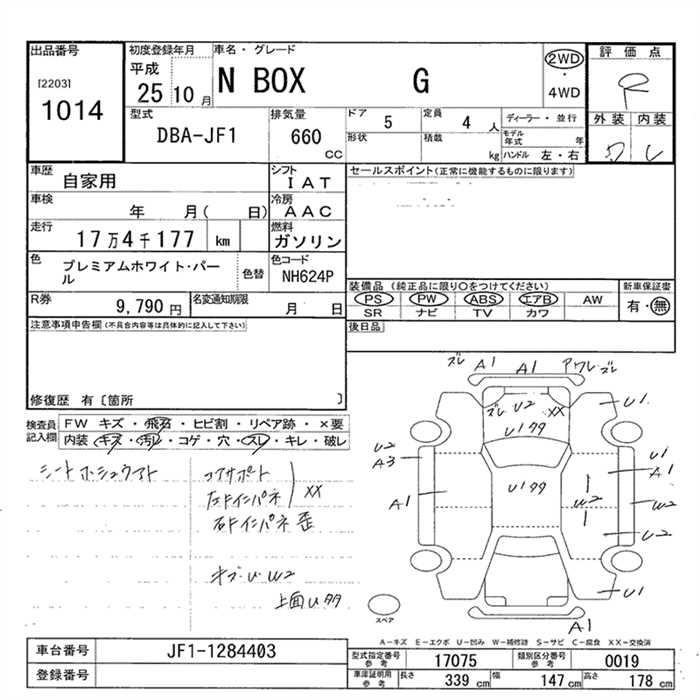 出品番号
[2203]
1014
初度登録年月
平成
25 10 月
車名・グレード
N BOX G
2WD
・
4WD
評価点
R
外装 内装
型式
DBA-JF1
排気量
660
cc
ドア
5
定員
4 人
形状
積載
kg
ディーラー・並行
モデル年式 年
ハンドル 左・右
車歴
自家用
シフト
IAT
車検
年 月( 日)
冷房
AAC
走行
17万4千177 km
燃料
ガソリン
色
プレミアムホワイト・パール
色替
色コード
NH624P
R券
9,790 円
名変通知期限
月 日
セールスポイント(正常に機能するものに限ります)
装備品(純正品に限り○をつけてください)
PS PW ABS エアB AW
SR ナビ TV カワ
新車保証書
有・無
後日品
注意事項申告欄(不具合内容等は具体的に記入して下さい)
修復歴 有〔箇所 〕
検査員記入欄
FW キズ・飛石・ヒビ割・リペア跡・×要
内装・キズ・汚レ・コゲ・穴・スレ・キレ・破レ
コアサポート
左ドインパネ XX
右ドインパネ 歪
キズ・U・W2
上面Uタタ
ズレ A1 A1 ズレ
ズレ U2 XX
Uタタ
Uタタ
U1
U2
A3
A1
U1
A1
W2
W2
U2
U1
A1
スペア
A-キズ E-エクボ U-凹み W-補修跡 S-サビ C-腐食 XX-交換済
車台番号
JF1-1284403
登録番号
型式指定番号
参考
17075
類別区分番号
参考
0019
車庫証明用
参考
長さ 339 cm 幅 147 cm 高さ 178 cm